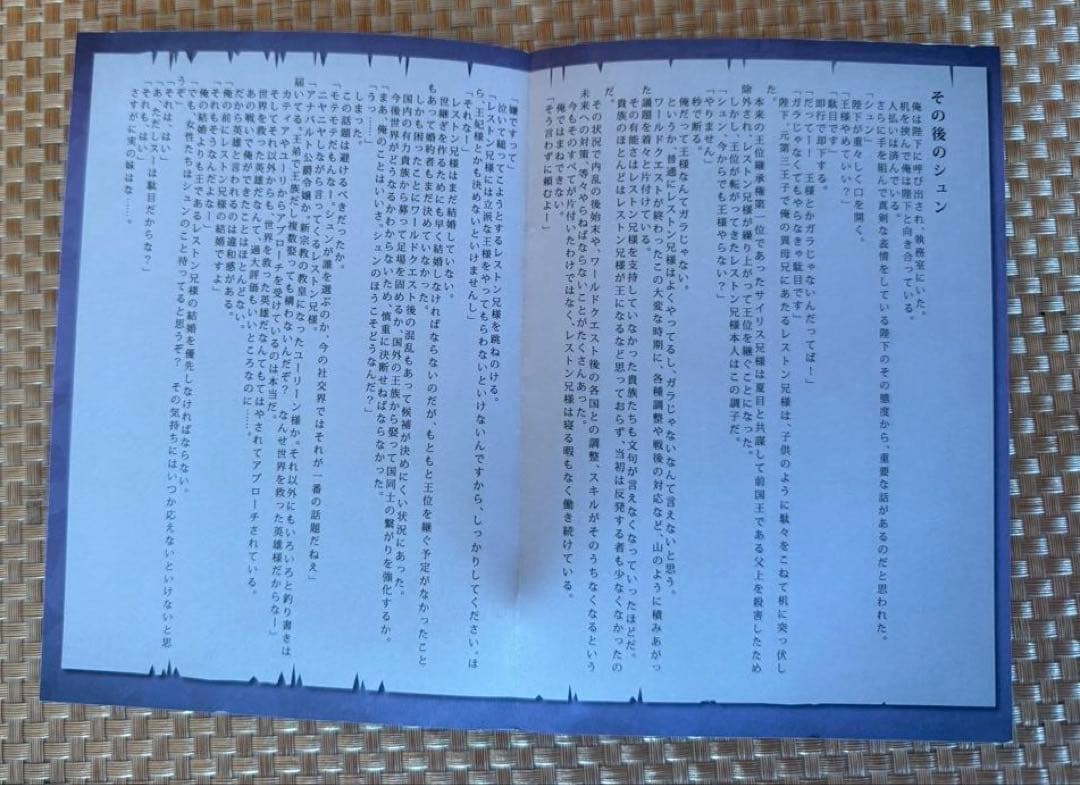 その後のシュン
俺は陛下に呼び出され、執務室にいた。
机を挟んで俺は陛下と向き合っている。
人払いは済んでいる。
さらに手を組んで真剣な表情をしている陛下のその態度から、重要な話があるのだと思われた。
「シュン」
陛下が重々しく口を開く。
「王様やめていい？」
「駄目です」
即行で却下する。
「だってー！　王様とかガラじゃないんだってば！」
「ガラじゃなくてもやらなきゃ駄目です」
陛下、元第三王子で俺の異母兄にあたるレストン兄様は、子供のように駄々をこねて机に突っ伏し
本来の王位継承権第一位であったサイリス兄様は夏目と共謀して前国王である父上を殺害したため
除外され、レストン兄様が繰り上がって王位を継ぐことになった。
しかし、王位が転がってきたレストン兄様本人はこの調子だ。
「シュン、今からでも王様やらない？」
「やりません」
秒で断る。
俺だって王様なんてガラじゃない。
というか、普通にレストン兄様はよくやってるし、ガラじゃないなんて言えないと思う。
内乱が終わったこの大変な時期に、各種調整や戦後の対応など、山のように積みあがっ
た議題を着々と片付けている。
その有能さはレストン兄様を支持していなかった貴族たちも文句が言えなくなっていったほどだ。
貴族のほとんどはレストン兄様が王になるなど思っておらず、当初は反発する者も少なくなかったの
だ。
その状況で内乱の後始末や、ワールドクエスト後の各国との調整、スキルがそのうちなくなるという
未来への対策、等々やらねばならないことがたくさんあった。
今もそのすべてが片付いたわけではなく、レストン兄様は寝る暇もなく働き続けている。
俺ではまねできない。
「そう言わずに頼むよー！」
「嫌ですって」
泣いて縋ってこようとするレストン兄様を跳ねのける。
「レストン兄様には立派な王様をやってもらわないといけないんですから、しっかりしてください。ほ
ら、王妃様とかも決めないといけませんし」
「それな！」
レストン兄様はまだ結婚していない。
世継ぎを作るためにも早く結婚しなければならないのだが、もともと王位を継ぐ予定がなかったこと
もあって婚約者もまだ決めていなかった。
しかも困ったことにワールドクエスト後の混乱もあって候補が決めにくい状況にあった。
国内の有力貴族から募って足場を固めるか、国外の王族から娶って国同士の繋がりを強化するか。
今後世界がどうなるかわからないため、慎重に決断せねばならなかった。
「まあ、俺のことはいいさ。シュンのほうこそどうなんだ？」
「うっ……」
しまった。
この話題は避けるべきだったか。
「モテモテだもんなー。シュンが誰を選ぶのか、今の社交界ではそれが一番の話題だねぇ」
ニヤニヤしながら言ってくるレストン兄様。
「アナバルト公爵令嬢か、新宗教の教皇になったユーリーン様か。それ以外にもいろいろと釣り書きは
届いてる。王弟で王族だし複数娶っても構わないんだぞ？　なんせ世界を救った英雄様だからなー」
カティアやユーリからアプローチを受けているのは本当だ。
そしてそれ以外からも、世界を救った英雄だなんてもてはやされてアプローチされている。
世界を救った英雄だなんて、過大評価もいいところなのに……。
あの戦いで俺ができたことはほとんどない。
だから英雄と言われるのは違和感がある。
「俺の前にまずレストン兄様の結婚ですよ」
それもそうなんだよなぁ」
俺の結婚よりも王であるレストン兄様の結婚を優先しなければならない。
「でも、女性たちはシュンのこと待ってると思うぞ？　その気持ちにはいつか応えないといけないと思
うぞ」
「それは、はい」
「あ、ただ、スーは駄目だからな？」
「それも、はい」
さすがに実の妹はな……。